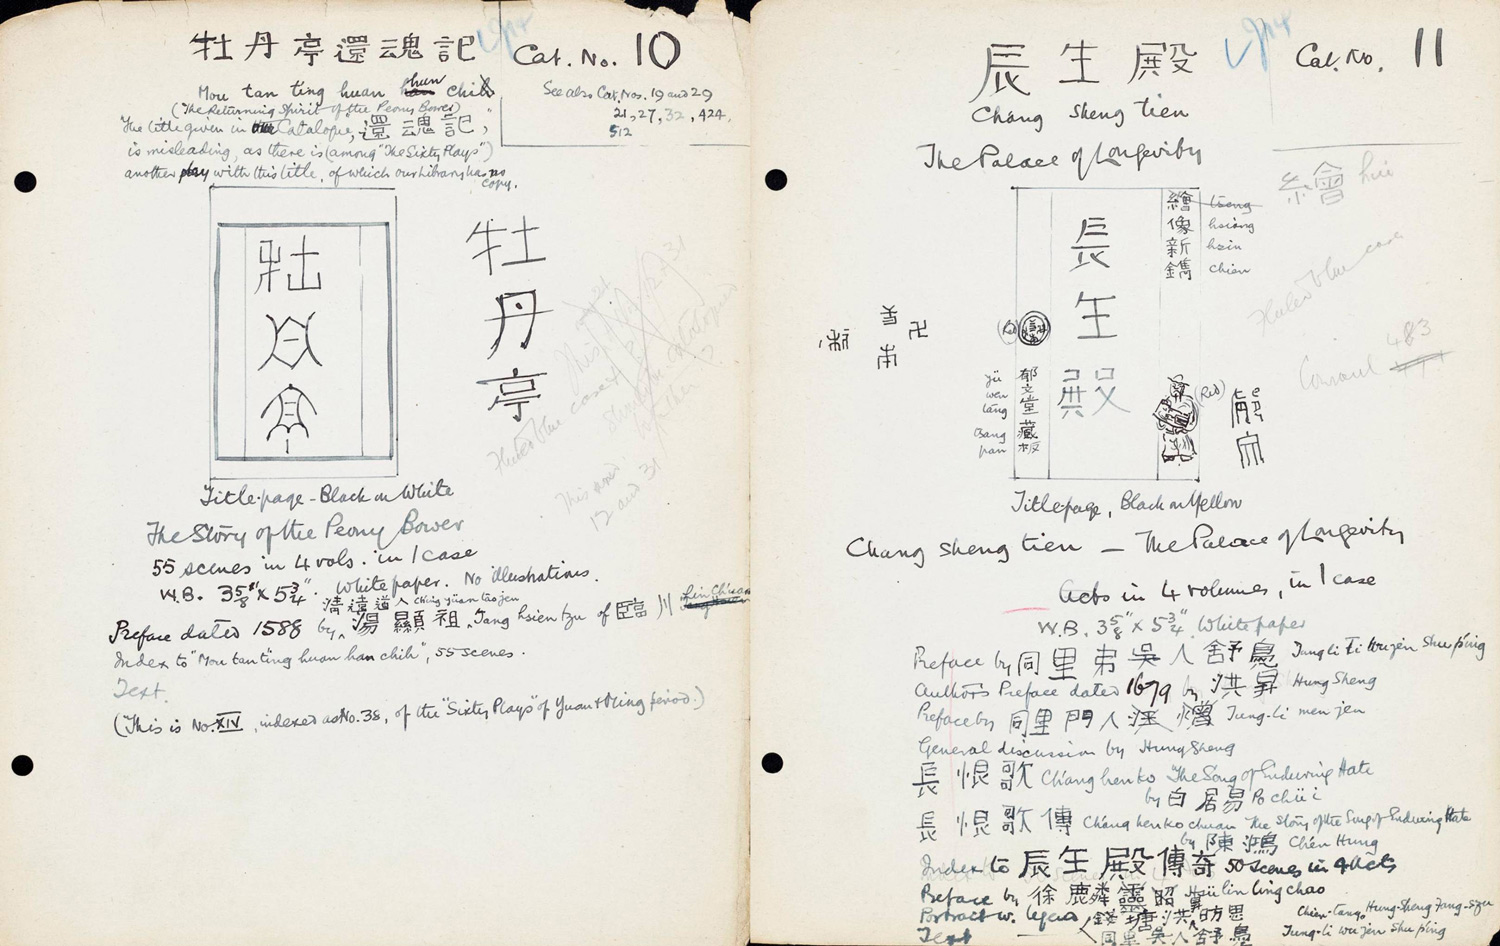 牡丹亭還魂記 Cat. No. 10
Mou tan ting huan hun chi
(The Returning Spirit of the Peony Bower)
The title given in Catalogue, 還魂記,"
is misleading, as there is (among "The Sixty Plays")
another play with this title, of which our Library has no
copy.
See also Cat. Nos. 19 and 29
21, 27, 32, 424,
512
牡丹亭
牡丹亭
Hubei blue case
This and
12 and 31
Title-page - Black on White
The Story of the Peony Bower
55 scenes in 4 vols. in 1 case
W.B. 3 5/8" x 5 3/4". White paper. No illustrations.
清遠道人 Ching yüan tao jen
Preface dated 1588 by 湯顯祖, Tang hsien tzu of 臨川 Lin Ch'uan
Index to "Mou tan ting huan han chih", 55 scenes.
Text.
(This is No. XIV, indexed as No. 38, of the "Sixty Plays" of Yuan & Ming period.)
長生殿 Cat. No. 11
Chang sheng tien
The Palace of Longevity
繪 hui
長生殿
繪像新鐫
tseng
hsiang
hsin
chien
(Red)
郁文堂藏板
yü
wen
tang
tsang
pan
(Red)
blue case
483
Title page, Black on Yellow
Chang sheng tien — The Palace of Longevity
Acts in 4 volumes, in 1 case
W.B. 3 5/8" x 5 3/4". White paper
Preface by 同里弟吳人舒鳧 Tung li Ti Wu jen Shu p'ing
Author's Preface dated 1679 by 洪昇 Hung Sheng
Preface by 同里門人汪熷 Tung-li men jen
General discussion by Hung Sheng
長恨歌 Chang hen ko "The Song of Enduring Hate
by 白居易 Po chü i
長恨歌傳 Chang hen ko chuan The Story of the Song of Enduring Hate
by 陳鴻 Ch'en Hung
Index to 長生殿傳奇 50 scenes in 4 Acts
Preface by 徐麟靈昭 Hsü lin ling chao
Portrait w. legend 錢塘洪昇昉思 Chien-tang, Hung-Sheng Fang-szu
Text 同里吳人舒鳧 Tung-li wu jen Shu p'ing